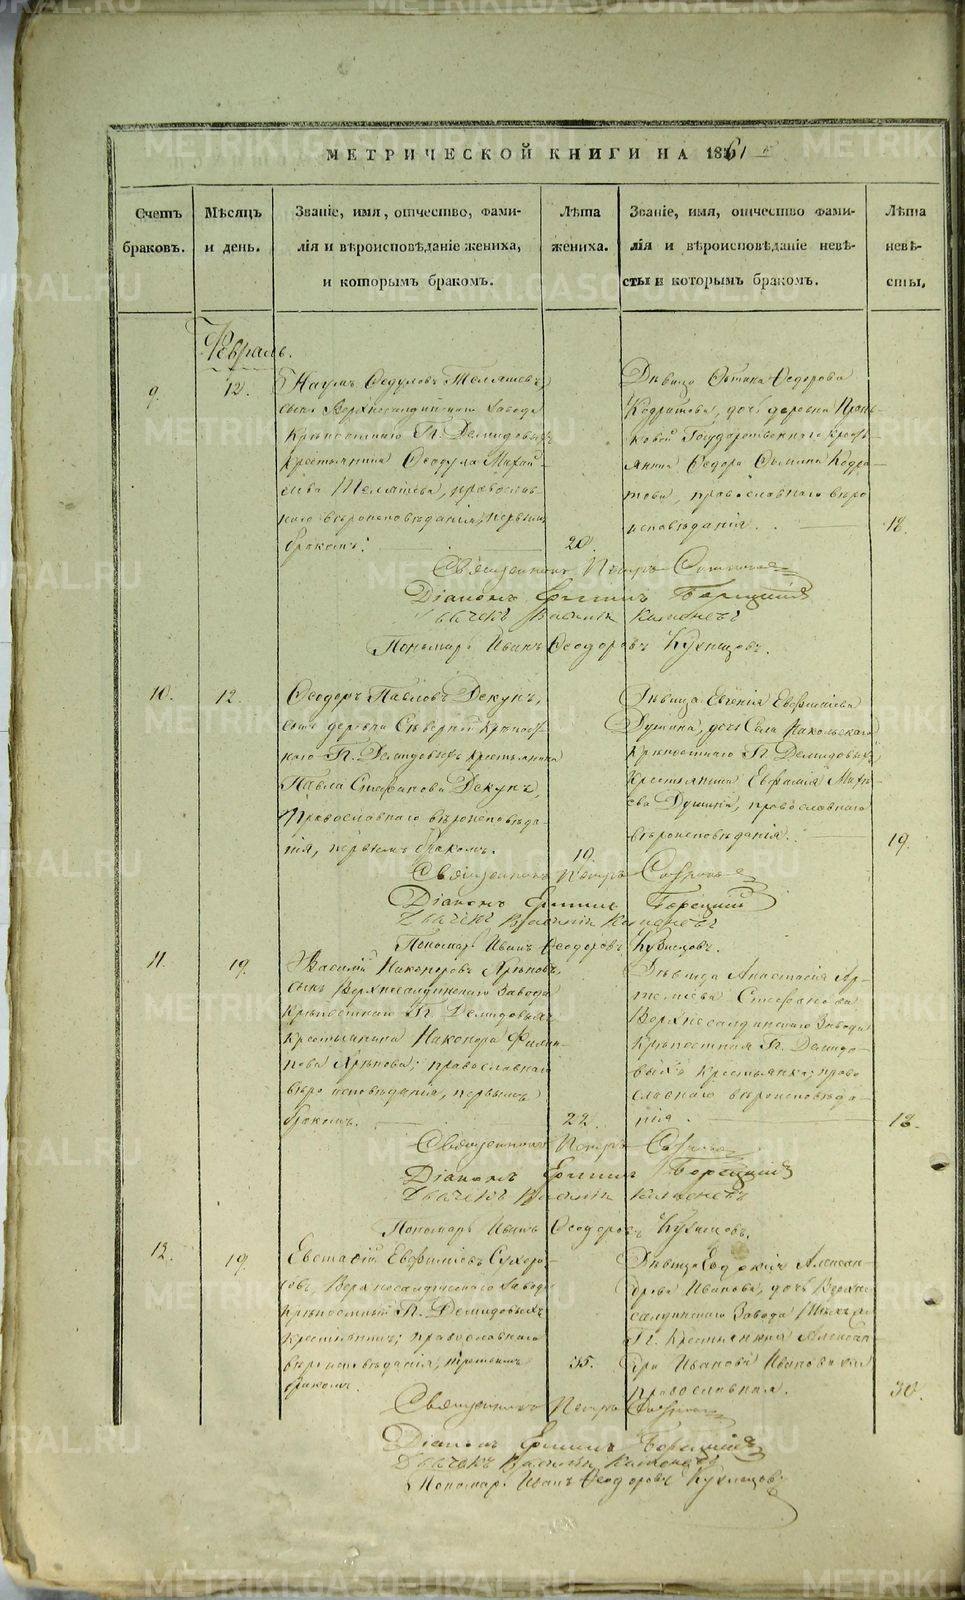 МЕТРИЧЕСКОЙ КНИГИ НА 1861
Счетъ браковъ.
Мѣсяцъ и день.
Званіе, имя, отчество, фами-
лія и вѣроисповѣданіе жениха,
и которымъ бракомъ.
Лѣта жениха.
Званіе, имя, отчество фами-
лія и вѣроисповѣданіе невѣ-
сты и которымъ бракомъ.
Лѣта невѣ-
сты,
Февраль.
9.
12.
Наумъ Федуловъ Теляшевъ
сынъ Верхнесалдинскаго Завода
Крѣпостнаго Гг. Демидовыхъ
крестьянина Феодула
Теляшева, православ-
наго вѣроисповѣданія, первымъ
бракомъ.
20.
Дѣвица Федорова
дочь деревни
Государственнаго крестъ-
янина Федора
православнаго вѣро
исповѣданія.
18.
Священникъ Петръ
Діаконъ Борецкій
Дьячекъ Василій
Пономарь Иванъ Феодоровъ Кузнецовъ.
10.
12.
Феодоръ Павловъ Декунъ,
сынъ деревни Сѣверной Крѣпост-
наго Гг. Демидовыхъ крестьянина
Павла Стефанова Декунъ,
Православнаго вѣроисповѣда-
нія, первымъ бракомъ.
19.
Дѣвица Евгенія Евфиміева
Душина, дочь Села Никольскаго
Крѣпостнаго Гг. Демидовыхъ
Крестьянина Евфимія
Душина, православнаго
вѣроисповѣданія.
19.
Священникъ Петръ
Діаконъ Борецкій
Дьячекъ Василій
Пономарь Иванъ Феодоровъ Кузнецовъ.
11.
19.
Василій Никоноровъ Хрѣновъ,
сынъ Верхнесалдинскаго Завода
Крѣпостнаго Гг. Демидовыхъ
Крестьянина Никонора Филип-
пова Хрѣнова; православнаго
вѣроисповѣданія, первымъ
бракомъ.
22.
Дѣвица Анастасія Ар-
темьева Стефанова
Верхнесалдинскаго Завода
Крѣпостная Гг. Демидо-
выхъ крестьянка; право
славнаго вѣроисповѣда-
нія.
18.
Священникъ Петръ
Діаконъ Борецкій
Дьячекъ Василій
Пономарь Иванъ Феодоровъ Кузнецовъ.
12.
19.
Евстафій Евфиміевъ Сухоро-
совъ, Верхнесалдинскаго Завода
Крѣпостный Гг. Демидовыхъ
крестьянинъ; православнаго
вѣроисповѣданія, третьимъ
бракомъ.
35.
Дѣвица Алексан-
дрова Иванова, дочь Верхне-
салдинскаго Завода
Гг. Крестьянина Алексан
дра Иванова
православная.
30.
Священникъ Петръ
Діаконъ Борецкій
Дьячекъ Василій
Пономарь Иванъ Феодоровъ Кузнецовъ.
METRIKI.GASO-URAL.RU